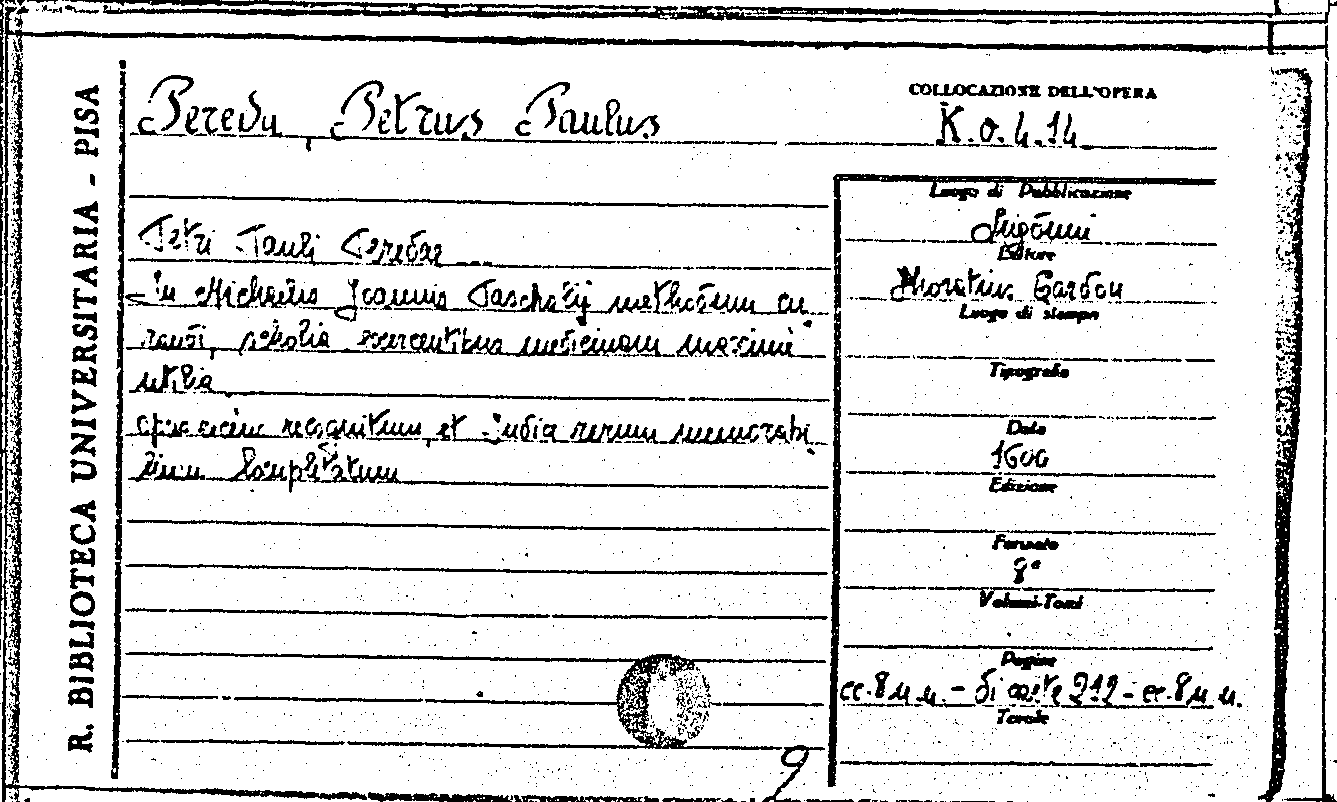 R. BIBLIOTECA UNIVERSITARIA - PISA
Pereda, Petrus Paulus
COLLOCAZIONE DELL'OPERA
K.o.4.14
Petri Pauli Peredae ...
In Michaelis Joannis Paschalij methodum cu
randi, scholia exercentibus medicinam maxime
utilia
recognitum, et India rerum memorabi
lium
Luogo di Pubblicazione
Lugduni
Editore
Horatius Cardon
Luogo di stampa
Tipografo
Data
1600
Edizione
Formato
8°
Volumi-Tomi
Pagine
cc. 8 n.n. - di carte 212 - cc. 8 n.n.
Tavole
9